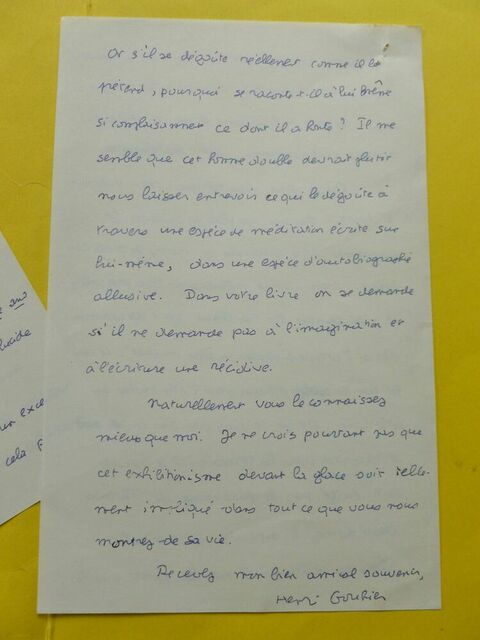 Or s'il se dégoûte réellement comme il le
prétend, pourquoi se raconte-t-il à lui même
si complaisamment ce dont il a honte ? Il me
semble que cet homme double devrait plutôt
nous laisser entrevoir ce qui le dégoûte à
travers une espèce de méditation écrite sur
lui-même, dans une espèce d'autobiographie
allusive. Dans votre livre on se demande
s'il ne demande pas à l'imagination et
à l'écriture une récidive.
Naturellement vous le connaissez
mieux que moi. Je ne crois pourtant pas que
cet exhibitionisme devant la glace soit telle-
ment impliqué dans tout ce que vous nous
montrez de sa vie.
Recevez mon bien amical souvenir,
Henri Gouhier
cela